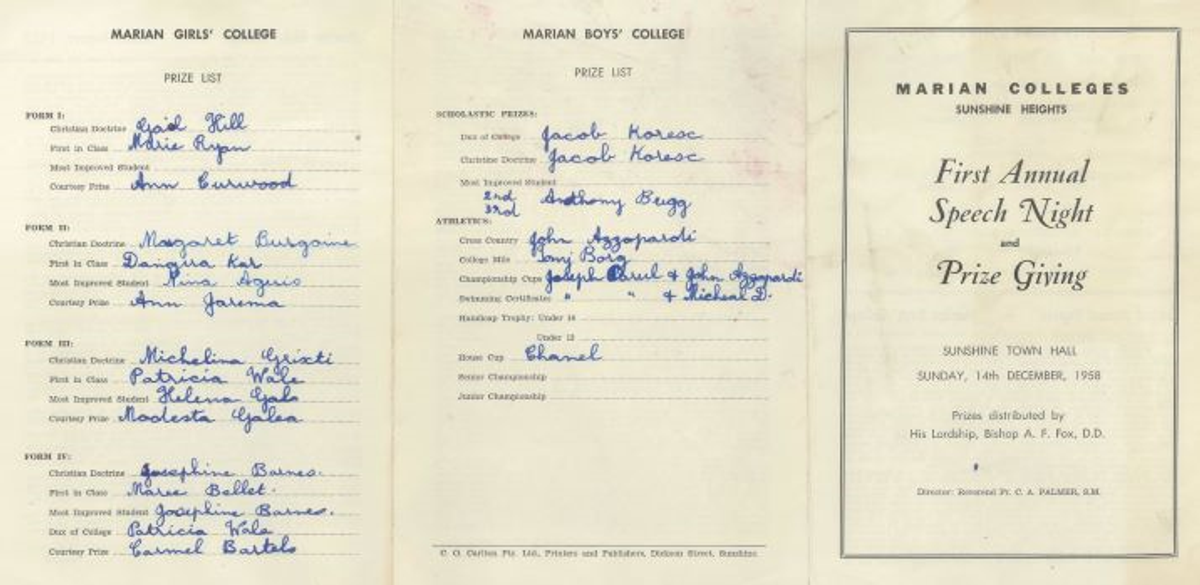 MARIAN GIRLS' COLLEGE
PRIZE LIST
FORM I:
Christian Doctrine Gail Hill
First in Class Marie Ryan
Most Improved Student
Courtesy Prize Ann Curwood
FORM II:
Christian Doctrine Margaret Burgoine
First in Class Danguta Kar
Most Improved Student Nina Agius
Courtesy Prize Ann Jarema
FORM III:
Christian Doctrine Michelina Grixti
First in Class Patricia Wale
Most Improved Student Helena Galo
Courtesy Prize Modesta Galea
FORM IV:
Christian Doctrine Josephine Barnes.
First in Class Maree Bellet.
Most Improved Student Josephine Barnes.
Dux of College Patricia Wale
Courtesy Prize Carmel Bartels
MARIAN BOYS' COLLEGE
PRIZE LIST
SCHOLASTIC PRIZES:
Dux of College Jacob Koresc
Christine Doctrine Jacob Koresc
Most Improved Student
2nd
3rd Anthony Bugg
ATHLETICS:
Cross Country John Azzopardi
College Mile Tony Borg
Championship Cups Joseph & John Azzopardi
Swimming Certificates " " & Micheal D.
Handicap Trophy: Under 14
Under 12
House Cup Chanel
Senior Championship
Junior Championship
C. G. Carlton Pty. Ltd., Printers and Publishers, Dickson Street, Sunshine.
MARIAN COLLEGES
SUNSHINE HEIGHTS
First Annual
Speech Night
and
Prize Giving
SUNSHINE TOWN HALL
SUNDAY, 14th DECEMBER, 1958
Prizes distributed by
His Lordship, Bishop A. F. Fox, D.D.
Director: Reverend Fr. C. A. PALMER, S.M.